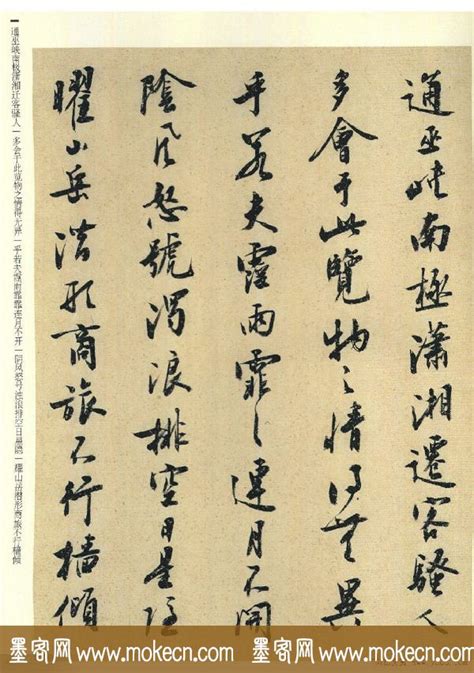 通巫峽南極瀟湘遷客騷人
多會于此覽物之情得無異
乎若夫霪雨霏々連月不開
陰風怒號濁浪排空日星隱
曜山岳潛形商旅不行檣傾
通巫峡南极潇湘迁客骚人|多会于此览物之情得无异|乎若夫霪雨霏霏连月不开|阴风怒号浊浪排空日星隐|耀山岳潜形商旅不行樯倾
墨客网 www.mokecn.com 墨客网 www.mokecn.com